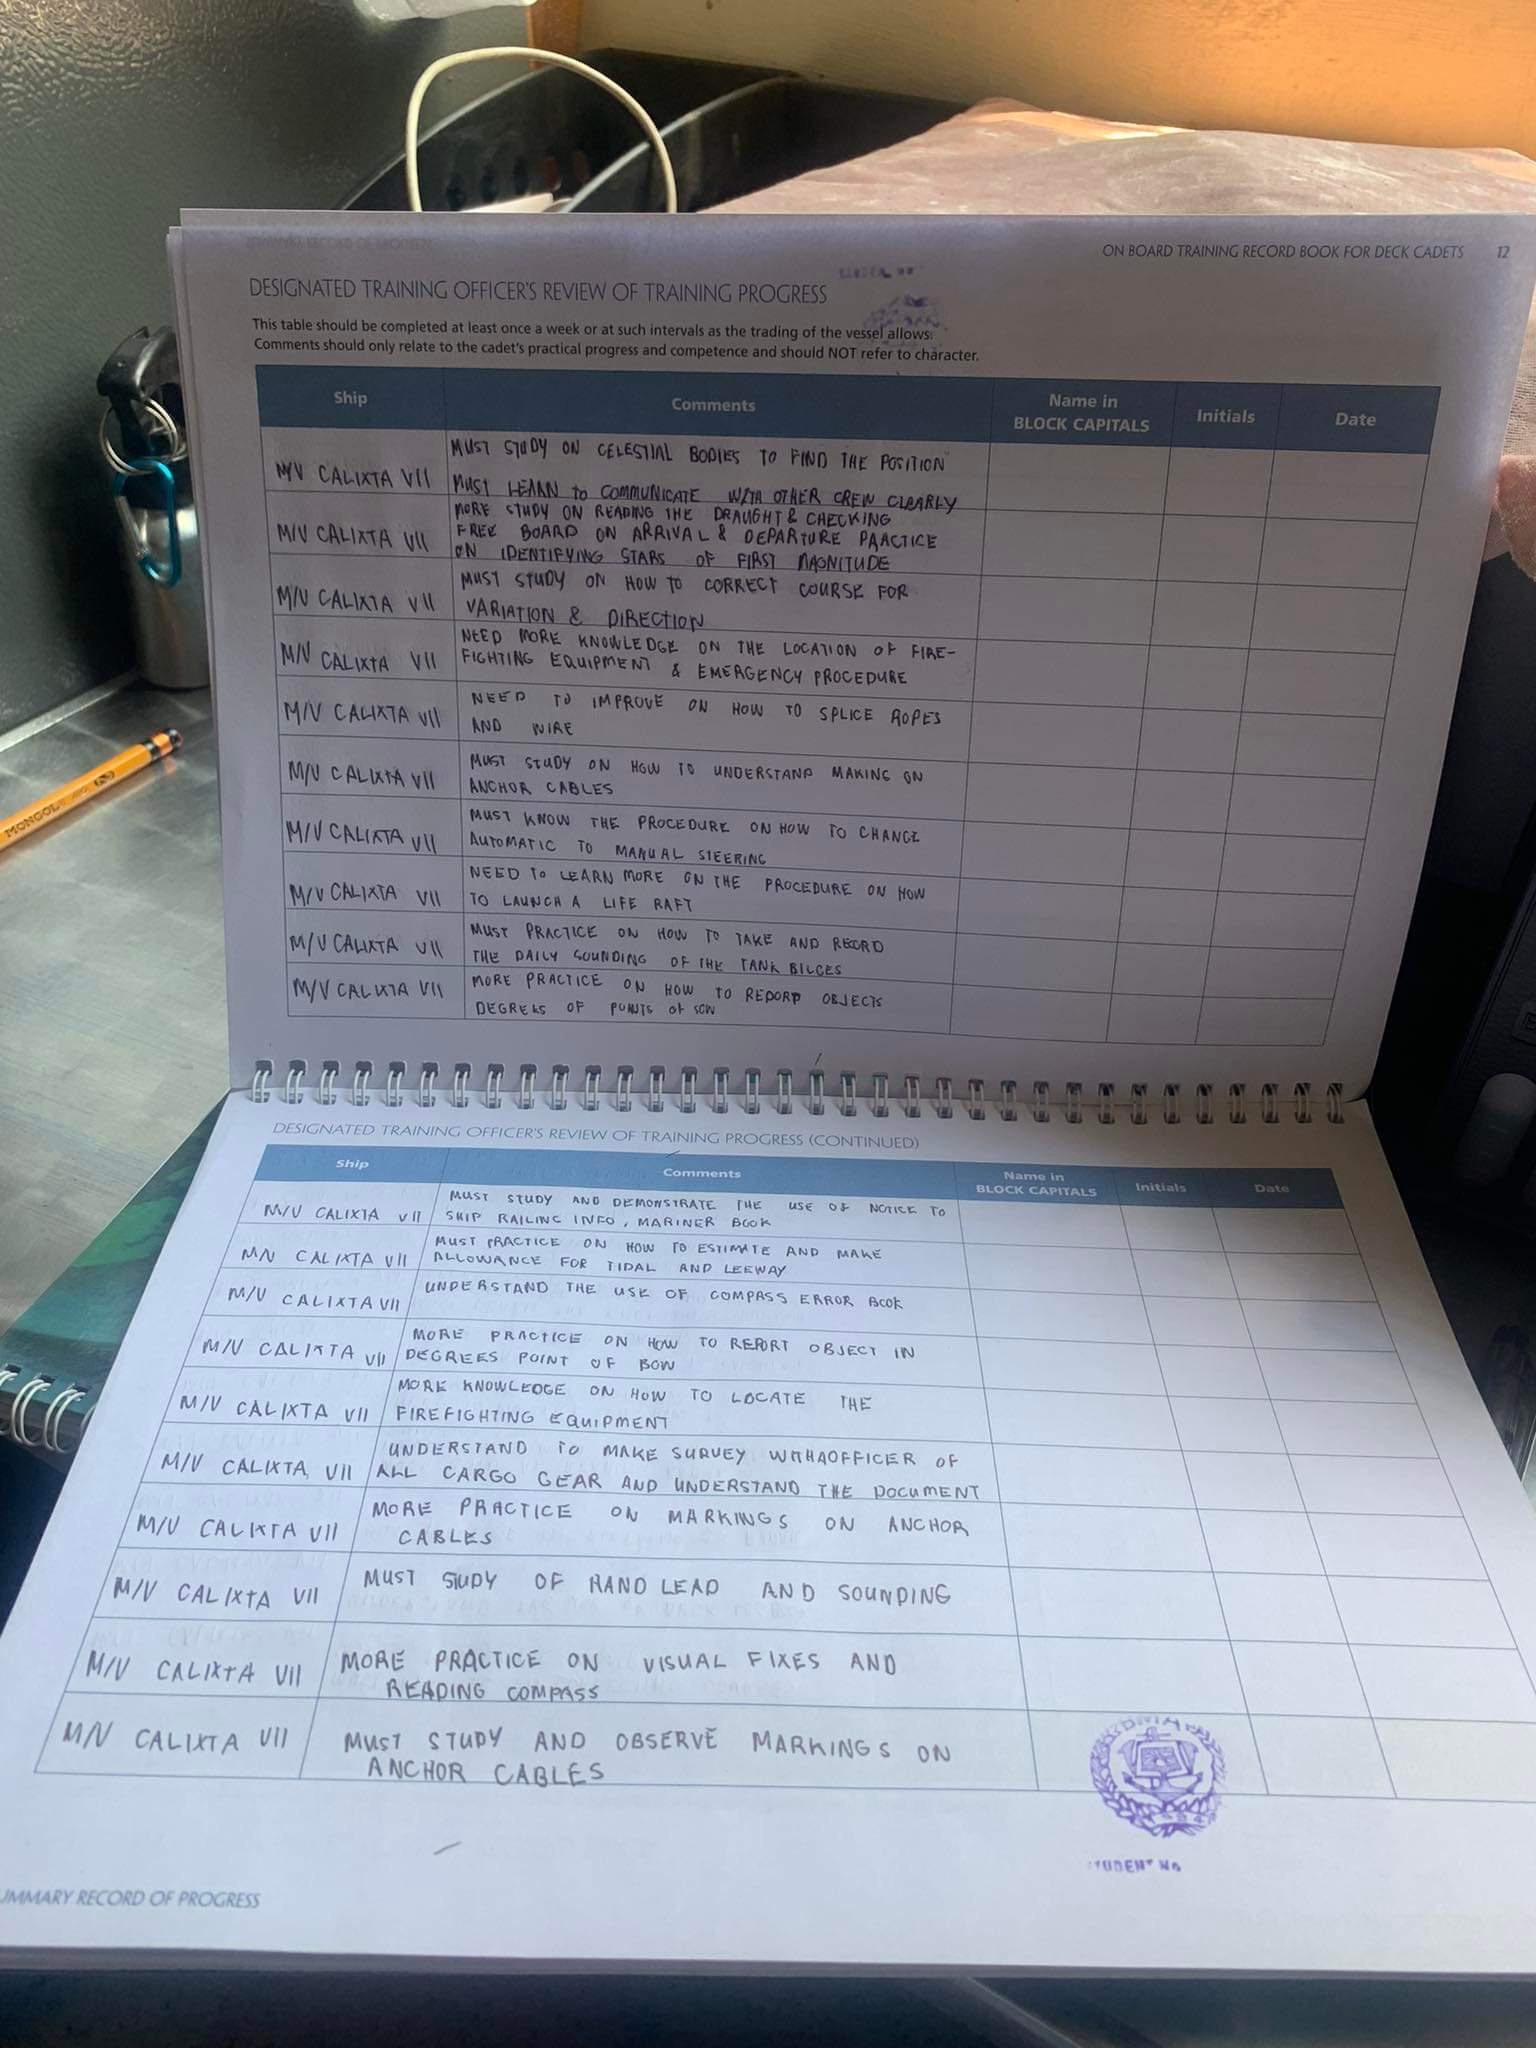 ON BOARD TRAINING RECORD BOOK FOR DECK CADETS 12
DESIGNATED TRAINING OFFICER'S REVIEW OF TRAINING PROGRESS
This table should be completed at least once a week or at such intervals as the trading of the vessel allows.
Comments should only relate to the cadet's practical progress and competence and should NOT refer to character.
Ship Comments Name in BLOCK CAPITALS Initials Date
M/V CALIXTA VII MUST STUDY ON CELESTIAL BODIES TO FIND THE POSITION
MUST LEARN TO COMMUNICATE WITH OTHER CREW CLEARLY
M/V CALIXTA VII MORE STUDY ON READING THE DRAUGHT & CHECKING
FREE BOARD ON ARRIVAL & DEPARTURE PRACTICE
ON IDENTIFYING STARS OF FIRST MAGNITUDE
M/V CALIXTA VII MUST STUDY ON HOW TO CORRECT COURSE FOR
VARIATION & DIRECTION
M/V CALIXTA VII NEED MORE KNOWLEDGE ON THE LOCATION OF FIRE-
FIGHTING EQUIPMENT & EMERGENCY PROCEDURE
M/V CALIXTA VII NEED TO IMPROVE ON HOW TO SPLICE ROPES
AND WIRE
M/V CALIXTA VII MUST STUDY ON HOW TO UNDERSTAND MAKING ON
ANCHOR CABLES
M/V CALIXTA VII MUST KNOW THE PROCEDURE ON HOW TO CHANGE
AUTOMATIC TO MANUAL STEERING
M/V CALIXTA VII NEED TO LEARN MORE ON THE PROCEDURE ON HOW
TO LAUNCH A LIFE RAFT
M/V CALIXTA VII MUST PRACTICE ON HOW TO TAKE AND RECORD
THE DAILY SOUNDING OF THE TANK BILGES
M/V CALIXTA VII MORE PRACTICE ON HOW TO REPORT OBJECTS
DEGREES OF POINTS OF
DESIGNATED TRAINING OFFICER'S REVIEW OF TRAINING PROGRESS (CONTINUED)
Ship Comments Name in BLOCK CAPITALS Initials Date
M/V CALIXTA VII MUST STUDY AND DEMONSTRATE THE USE OF NOTICE TO
SHIP RAILING INFO, MARINER BOOK
M/V CALIXTA VII MUST PRACTICE ON HOW TO ESTIMATE AND MAKE
ALLOWANCE FOR TIDAL AND LEEWAY
M/V CALIXTA VII UNDERSTAND THE USE OF COMPASS ERROR BOOK
M/V CALIXTA VII MORE PRACTICE ON HOW TO REPORT OBJECT IN
DEGREES POINT OF BOW
M/V CALIXTA VII MORE KNOWLEDGE ON HOW TO LOCATE THE
FIREFIGHTING EQUIPMENT
M/V CALIXTA VII UNDERSTAND TO MAKE SURVEY WITHAOFFICER OF
ALL CARGO GEAR AND UNDERSTAND THE DOCUMENT
M/V CALIXTA VII MORE PRACTICE ON MARKINGS ON ANCHOR
CABLES
M/V CALIXTA VII MUST STUDY OF HAND LEAD AND SOUNDING
M/V CALIXTA VII MORE PRACTICE ON VISUAL FIXES AND
READING COMPASS
M/V CALIXTA VII MUST STUDY AND OBSERVE MARKINGS ON
ANCHOR CABLES
STUDENT No
UMMARY RECORD OF PROGRESS
MONGOL